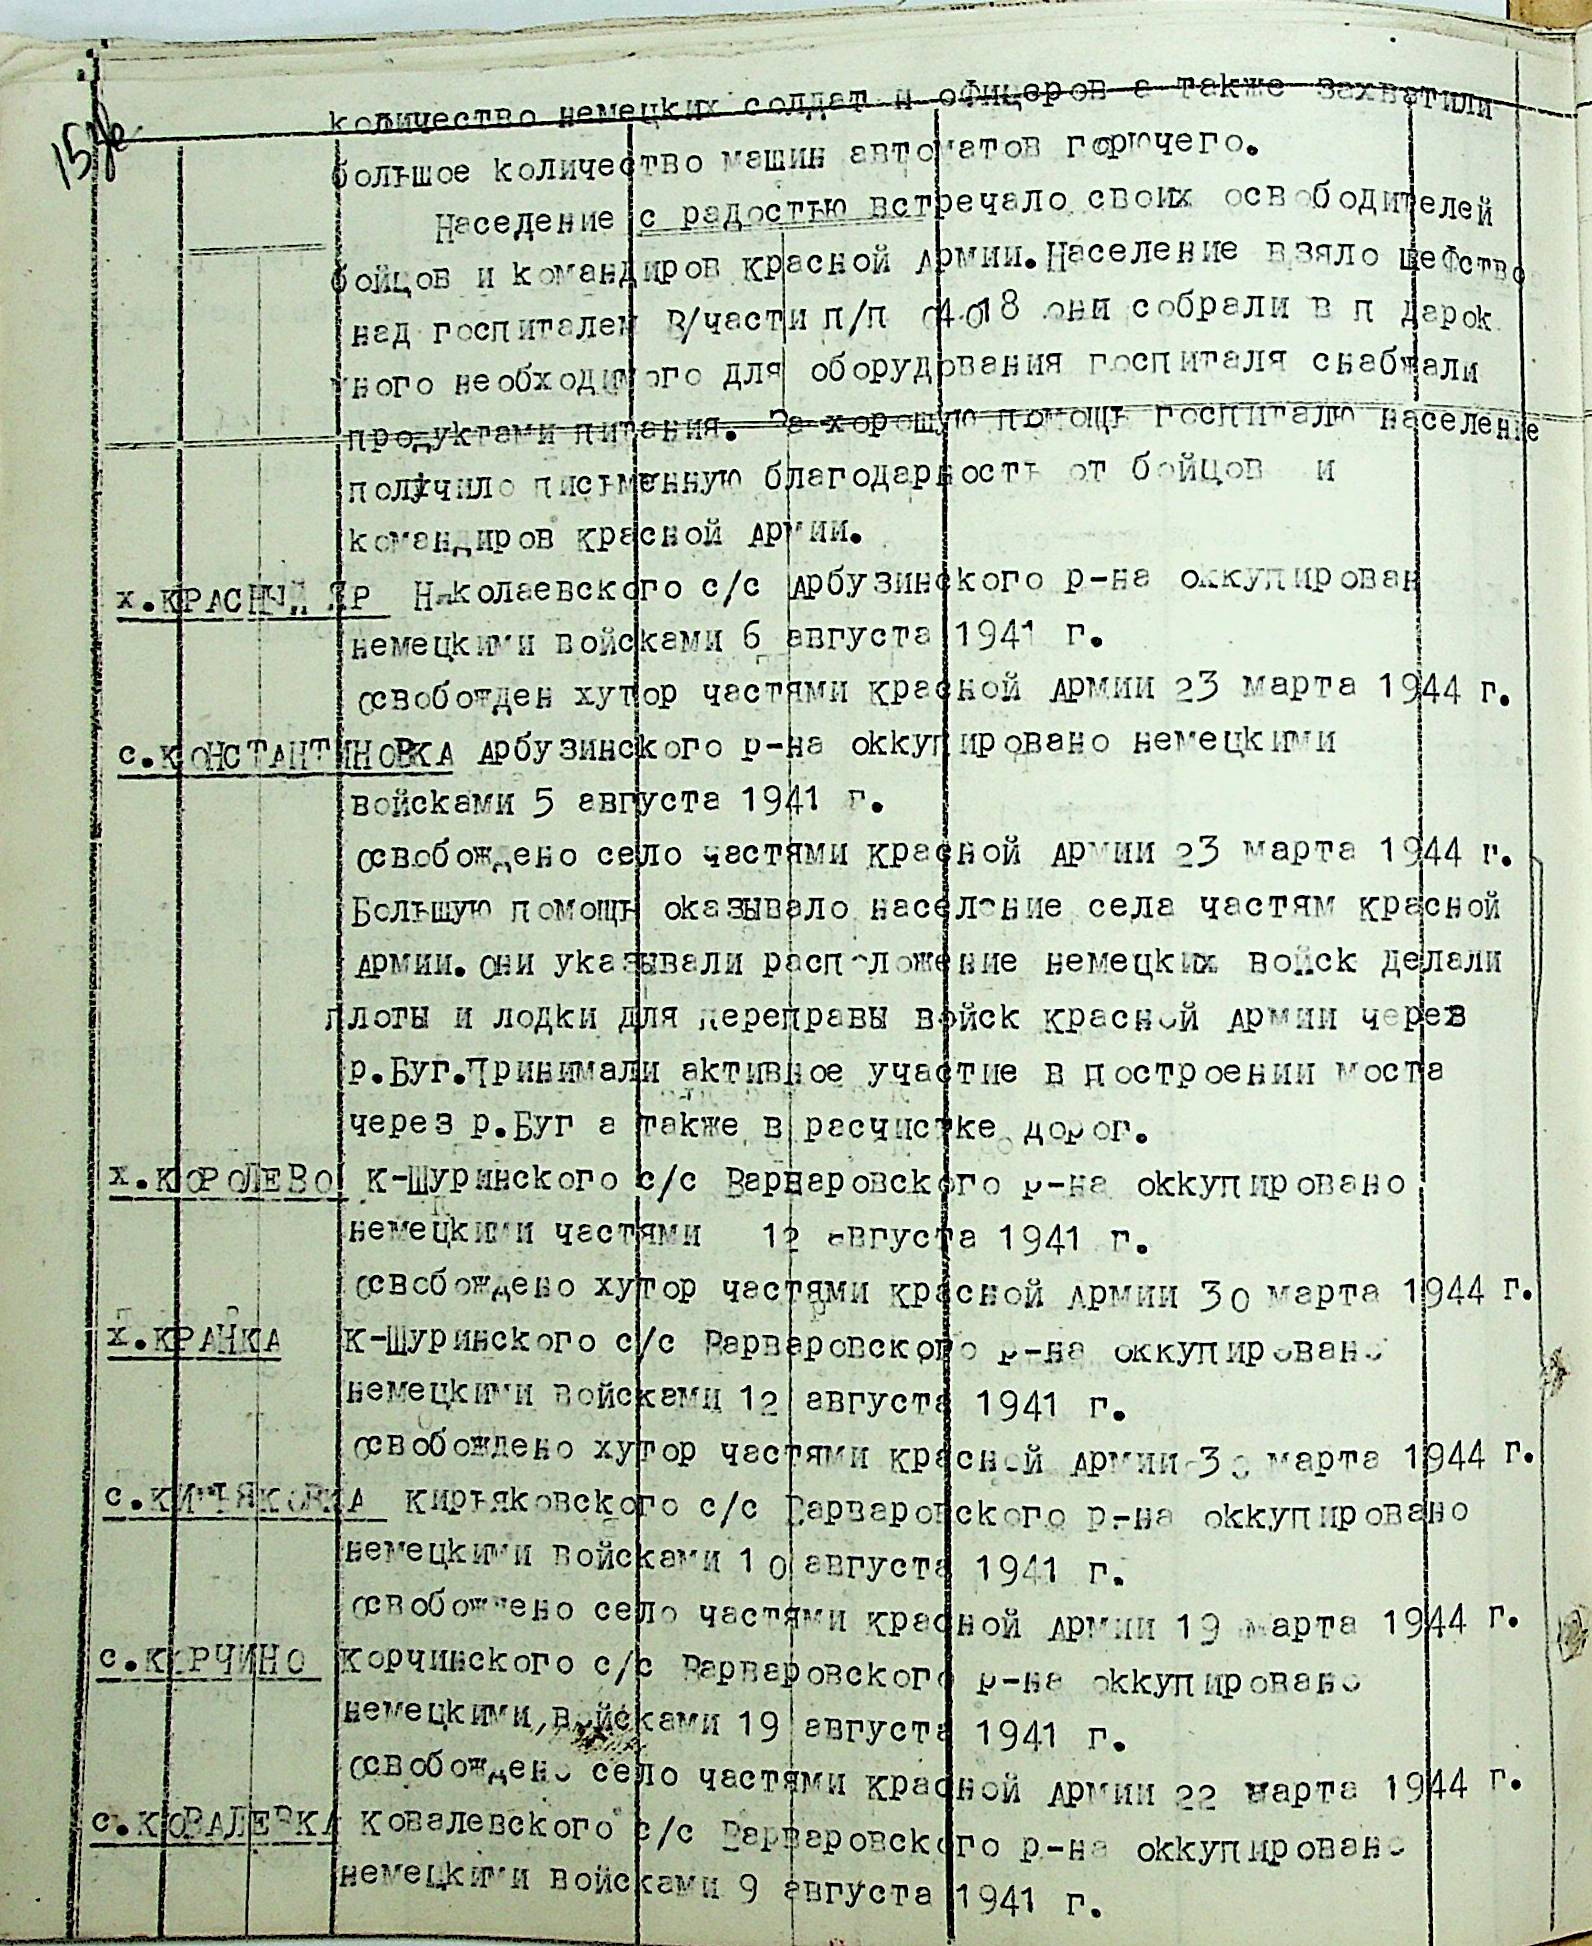 количество немецких солдат и офицеров а также захватили
большое количество машин автоматов горючего.
Наседение с радостью встречало своих освободителей
бойцов и командиров красной Армии.Население взяло шефство
над госпиталем в/части п/п они собрали в п дарок
много необходимого для оборудования госпиталя снабжали
продуктами питания. За хорошую помощь госпиталю население
получило письменную благодарность от бойцов и
командиров красной Армии.
х.КРАСНЫЙ ЯР Николаевского с/с Арбузинского р-на оккупирован
немецкими войсками 6 августа 1941 г.
освобожден хутор частями красной Армии 23 марта 1944 г.
с.КОНСТАНТИНОВКА Арбузинского р-на оккупировано немецкими
войсками 5 августа 1941 г.
освобождено село частями красной Армии 23 марта 1944 г.
Большую помощь оказывало население села частям красной
Армии.они указывали расположение немецких войск делали
плоты и лодки для переправы войск красной Армии через
р.Буг.Принимали активное участие в построении моста
через р.Буг а также в расчистке дорог.
х.КОРОЛЕВО К-Шуринского с/с Варваровского р-на оккупировано
немецкими частями 12 августа 1941 г.
освобождено хутор частями красной Армии 30 марта 1944 г.
х.КРАНКА К-Шуринского с/с Варваровского р-на оккупировано
немецкими войсками 12 августа 1941 г.
освобождено хутор частями красной Армии 30 марта 1944 г.
с.КИРЬЯКОВКА Кирьяковского с/с Варваровского р-на оккупировано
немецкими войсками 10 августа 1941 г.
освобождено село частями красной Армии 19 марта 1944 г.
с.КОРЧИНО Корчинского с/с Варваровского р-на оккупировано
немецкими войсками 19 августа 1941 г.
освобождено село частями красной Армии 22 марта 1944 г.
с.КОВАЛЕВКА Ковалевского с/с Варваровского р-на оккупировано
немецкими войсками 9 августа 1941 г.